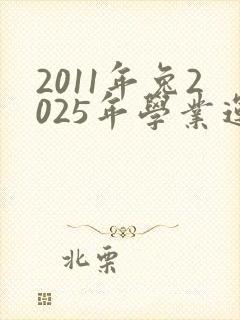 2011年兔2
025年學業運
北栗